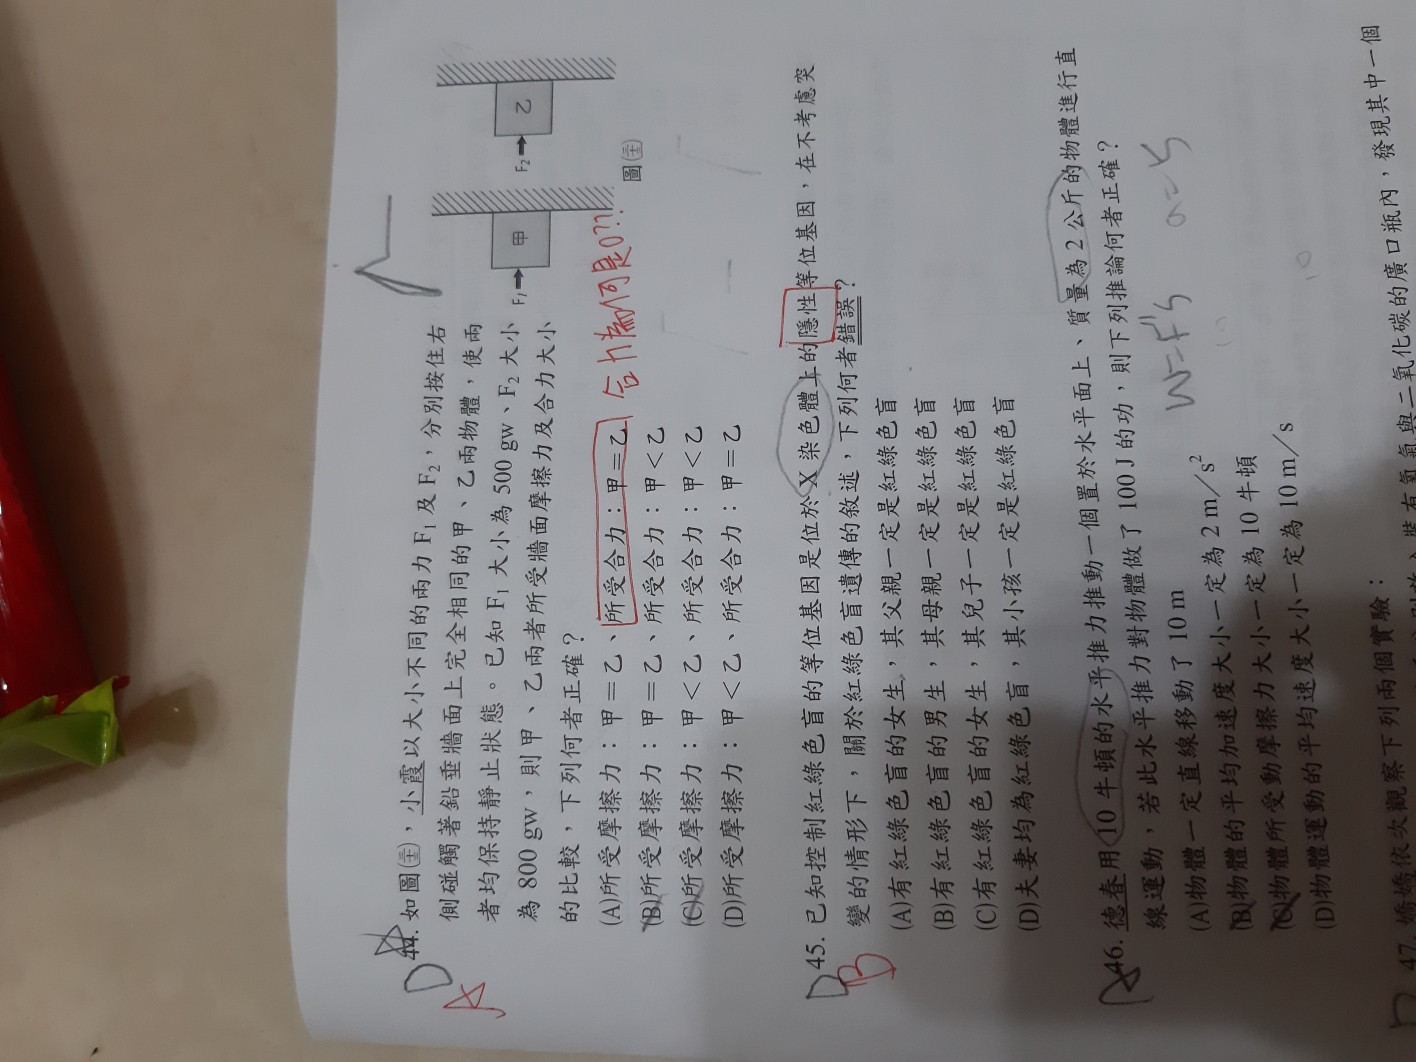 D
A
44.如圖(三),小霞以大小不同的兩力 F₁ 及 F₂,分別按住右
側碰觸著鉛垂牆面上完全相同的甲、乙兩物體,使兩
者均保持靜止狀態。已知 F₁ 大小為 500 gw、F₂ 大小
為 800 gw,則甲、乙兩者所受牆面摩擦力及合力大小
的比較,下列何者正確?
(A)所受摩擦力:甲=乙、所受合力:甲=乙
合力為何是0??
(B)所受摩擦力:甲=乙、所受合力:甲<乙
(C)所受摩擦力:甲<乙、所受合力:甲<乙
(D)所受摩擦力:甲<乙、所受合力:甲=乙
F₁
甲
F₂
乙
D
B
45. 已知控制紅綠色盲的等位基因是位於 X 染色體上的隱性等位基因,在不考慮突
變的情形下,關於紅綠色盲遺傳的敘述,下列何者錯誤?
(A)有紅綠色盲的女生,其父親一定是紅綠色盲
(B)有紅綠色盲的男生,其母親一定是紅綠色盲
(C)有紅綠色盲的女生,其兒子一定是紅綠色盲
(D)夫妻均為紅綠色盲,其小孩一定是紅綠色盲
46. 德春用 10 牛頓的水平推力推動一個置於水平面上、質量為 2 公斤的物體進行直
線運動,若此水平推力對物體做了 100 J 的功,則下列推論何者正確?
W=FS
a=5
10
10
(A)物體一定直線移動了 10 m
(B)物體的平均加速度大小一定為 2 m/s²
(C)物體所受動摩擦力大小一定為 10 牛頓
(D)物體運動的平均速度大小一定為 10 m/s
47. 嬌嬌依次觀察下列兩個實驗:
與二氧化碳的廣口瓶內,發現其中一個